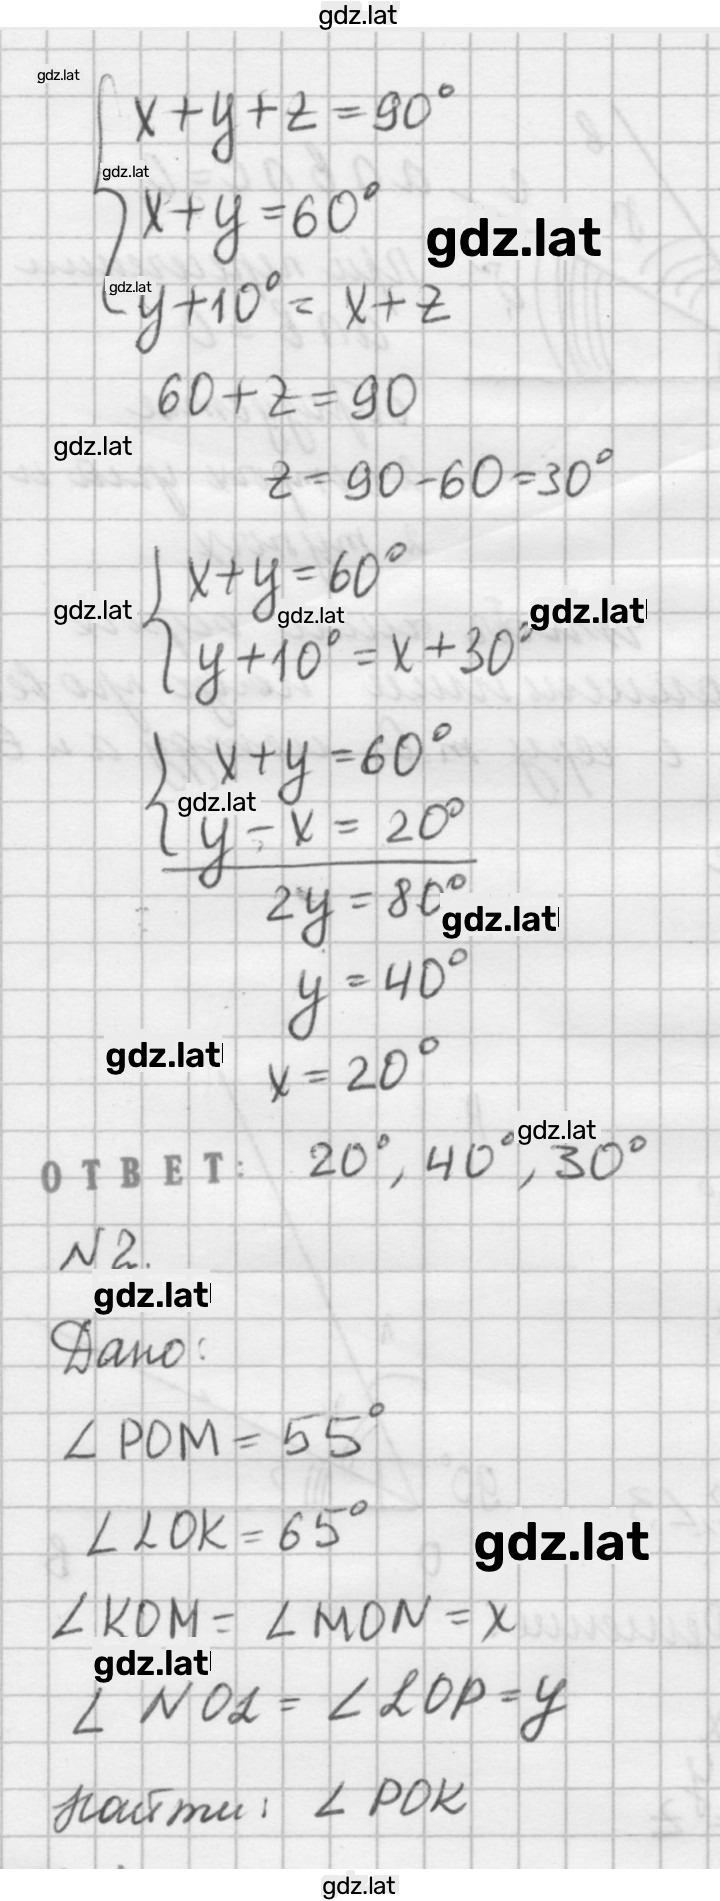 gdz.lat
gdz.lat
x+y+z=90°
gdz.lat
x+y=60°
gdz.lat
gdz.lat
y+10°= x+z
60+z=90
gdz.lat
z=90-60=30°
x+y=60°
gdz.lat
gdz.lat
gdz.lat
y+10°=x+30°
x+y=60°
gdz.lat
y-x= 20°
2y=80°
gdz.lat
y=40°
gdz.lat
x=20°
gdz.lat
ОТВЕТ: 20°, 40°, 30°
N2.
gdz.lat
Дано:
∠POM=55°
∠LOK=65°
gdz.lat
∠KOM= ∠MON=x
gdz.lat
∠NOL= ∠LOP=y
Найти: ∠POK
gdz.lat